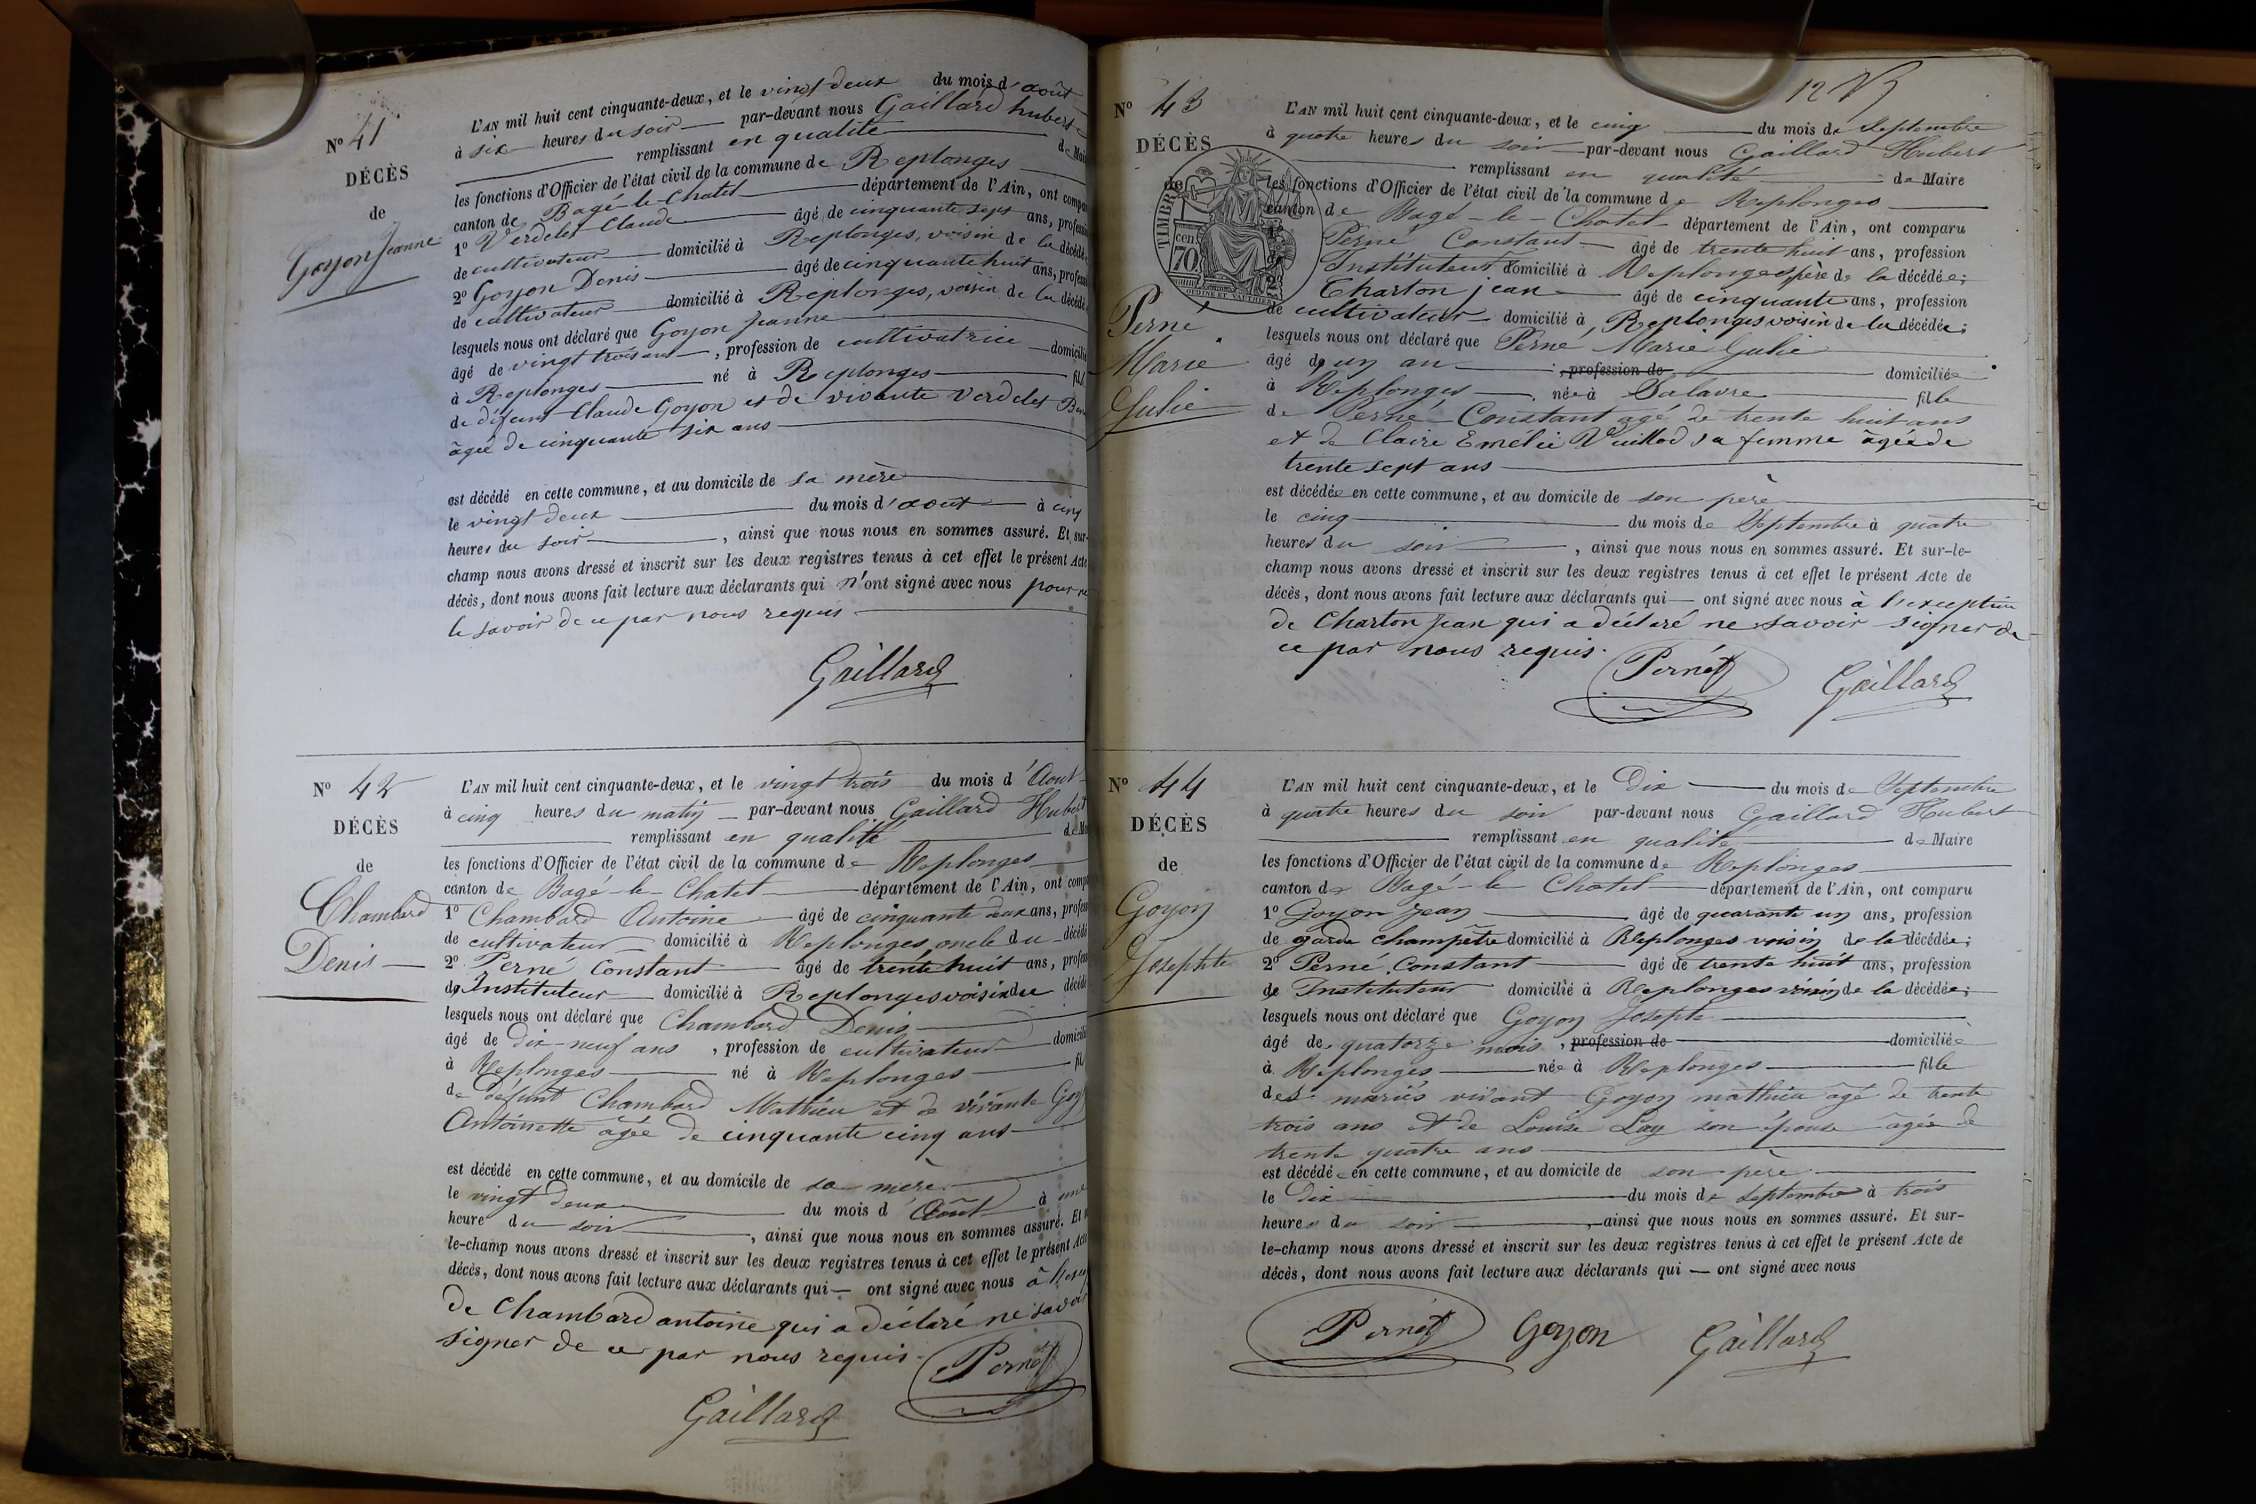 N° 41
DÉCÈS
de
Goyon Jeanne
L'AN mil huit cent cinquante-deux, et le vingt deux du mois d'août
à six heures du soir par-devant nous Gaillard hubert
remplissant en qualité de Mai
les fonctions d'Officier de l'état civil de la commune de Replonges
canton de Bagé-le-Chatel département de l'Ain, ont compa
1° Verdelet Claude âgé de cinquante sept ans, profess
de cultivateur domicilié à Replonges, voisin de la décédé
2° Goyon Denis âgé de cinquante huit ans, profess
de cultivateur domicilié à Replonges, voisin de la décédé
lesquels nous ont déclaré que Goyon Jeanne
âgé de vingt trois ans, profession de cultivatrice domicilié
à Replonges né à Replonges fil
de défunt Claude Goyon et de vivante Verdelet
âgée de cinquante six ans
est décédé en cette commune, et au domicile de sa mère
le vingt deux du mois d'août à cinq
heures du soir, ainsi que nous nous en sommes assuré. Et sur-
champ nous avons dressé et inscrit sur les deux registres tenus à cet effet le présent Acte
décès, dont nous avons fait lecture aux déclarants qui n'ont signé avec nous pour ne
le savoir de ce par nous requis
Gaillard
N° 42
DÉCÈS
de
Chambard
Denis
L'AN mil huit cent cinquante-deux, et le vingt trois du mois d'Aout
à cinq heures du matin par-devant nous Gaillard Hubert
remplissant en qualité de Ma
les fonctions d'Officier de l'état civil de la commune de Replonges
canton de Bagé-le-Chatel département de l'Ain, ont comp
1° Chambard Antoine âgé de cinquante deux ans, profess
de cultivateur domicilié à Replonges oncle du décédé
2° Perné Constant âgé de trente huit ans, profess
de Instituteur domicilié à Replonges voisin du décédé
lesquels nous ont déclaré que Chambard Denis
âgé de dix-neuf ans, profession de cultivateur domicilié
à Replonges né à Replonges fil
de défunt Chambard Mathieu et de vivante Goy
Antoinette âgée de cinquante cinq ans
est décédé en cette commune, et au domicile de sa mère
le vingt deux du mois d'Août à une
heure du soir, ainsi que nous nous en sommes assuré. Et
le-champ nous avons dressé et inscrit sur les deux registres tenus à cet effet le présent Acte
décès, dont nous avons fait lecture aux déclarants qui — ont signé avec nous à l'excep
de Chambard antoine qui a déclaré ne savoir
signer de ce par nous requis.
Pernét
Gaillard
12
N° 43
DÉCÈS
de
Perné
Marie
Julie
TIMBRE
cen
70
L'AN mil huit cent cinquante-deux, et le cinq du mois de Septembre
à quatre heures du soir par-devant nous Gaillard Hubert
remplissant en qualité de Maire
les fonctions d'Officier de l'état civil de la commune de Replonges
canton de Bagé-le-Chatel département de l'Ain, ont comparu
Perné Constant âgé de trente huit ans, profession
Instituteur domicilié à Replonges père de la décédée;
Charton jean âgé de cinquante ans, profession
de cultivateur domicilié à Replonges voisin de la décédée;
lesquels nous ont déclaré que Perné Marie Julie
âgé de un an, profession de domiciliée
à Replonges, née à Salavre fille
de Perné Constant agé de trente huit ans
et de Claire Emélie Vuillod sa femme âgée de
trente sept ans
est décédée en cette commune, et au domicile de son père
le cinq du mois de Septembre à quatre
heures du soir, ainsi que nous nous en sommes assuré. Et sur-le-
champ nous avons dressé et inscrit sur les deux registres tenus à cet effet le présent Acte de
décès, dont nous avons fait lecture aux déclarants qui — ont signé avec nous à l'exception
de Charton Jean qui a déclaré ne savoir signer de
ce par nous requis.
Pernét
Gaillard
N° 44
DÉCÈS
de
Goyon
Josephte
L'AN mil huit cent cinquante-deux, et le Dix du mois de Septembre
à quatre heures du soir par-devant nous Gaillard Hubert
remplissant en qualité de Maire
les fonctions d'Officier de l'état civil de la commune de Replonges
canton de Bagé-le Chatel département de l'Ain, ont comparu
1° Goyon Jean âgé de quarante un ans, profession
de garde champêtre domicilié à Replonges voisin de la décédée;
2° Perné Constant âgé de trente huit ans, profession
de Instituteur domicilié à Replonges voisin de la décédée;
lesquels nous ont déclaré que Goyon Josepte
âgé de quatorze mois, profession de domiciliée
à Replonges née à Replonges fille
des mariés vivant Goyon mathieu agé de trente
trois ans et de Louise Lay son épouse agée de
trente quatre ans
est décédée en cette commune, et au domicile de son père
le dix du mois de septembre à trois
heures du soir, ainsi que nous nous en sommes assuré. Et sur-
le-champ nous avons dressé et inscrit sur les deux registres tenus à cet effet le présent Acte de
décès, dont nous avons fait lecture aux déclarants qui — ont signé avec nous
Pernét Goyon Gaillard